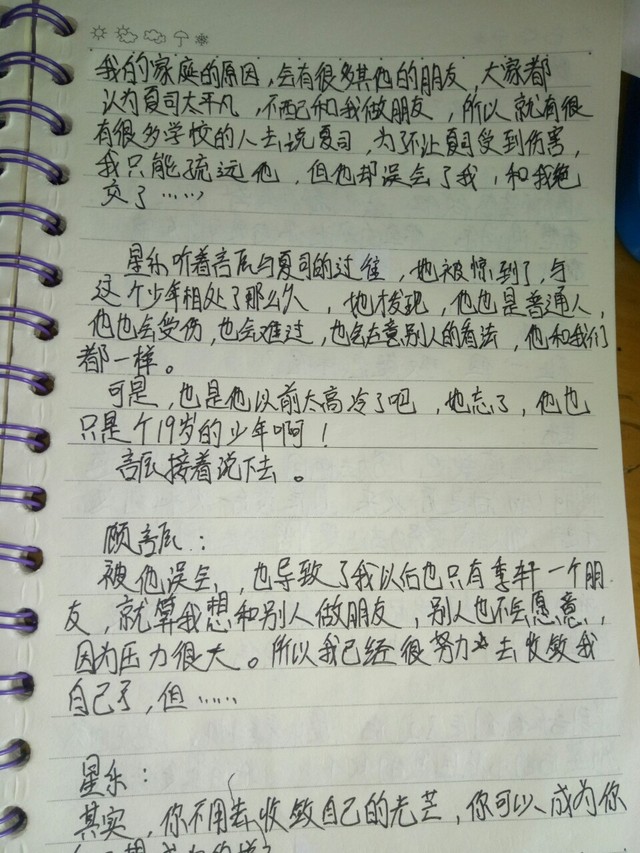 我的家庭的原因，会有很多其他的朋友，大家都
认为夏司太平凡，不配和我做朋友，所以就有很
有很多学校的人去说夏司，为了不让夏司受到伤害，
我只能疏远他，但他却误会了我，和我绝
交了……
星乐听着言辰与夏司的过往，她被惊到了，与
这个少年相处了那么久，她才发现，他也是普通人，
他也会受伤，也会难过，也会在意别人的看法，他和我们
都一样。
可是，也是他以前太高冷了吧，她忘了，他也
只是个19岁的少年啊！
言辰接着说下去。
顾言辰：
被他误会，也导致了我以后也只有季轩一个朋
友，就算我想和别人做朋友，别人也不会愿意，
因为压力很大。所以我已经很努力去收敛我
自己了，但……
星乐：
其实，你不用去收敛自己的光芒，你可以成为你